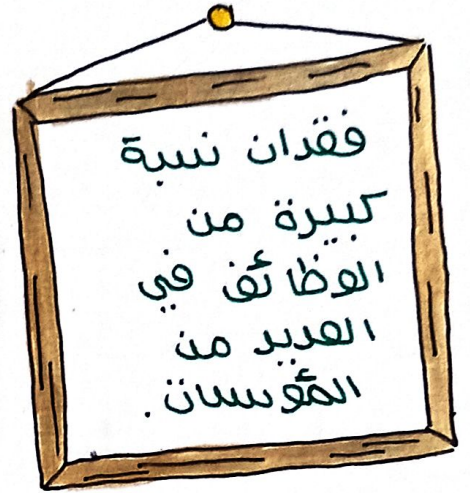 فقدان نسبة
كبيرة من
الوظائف في
العديد من
المؤسسات.